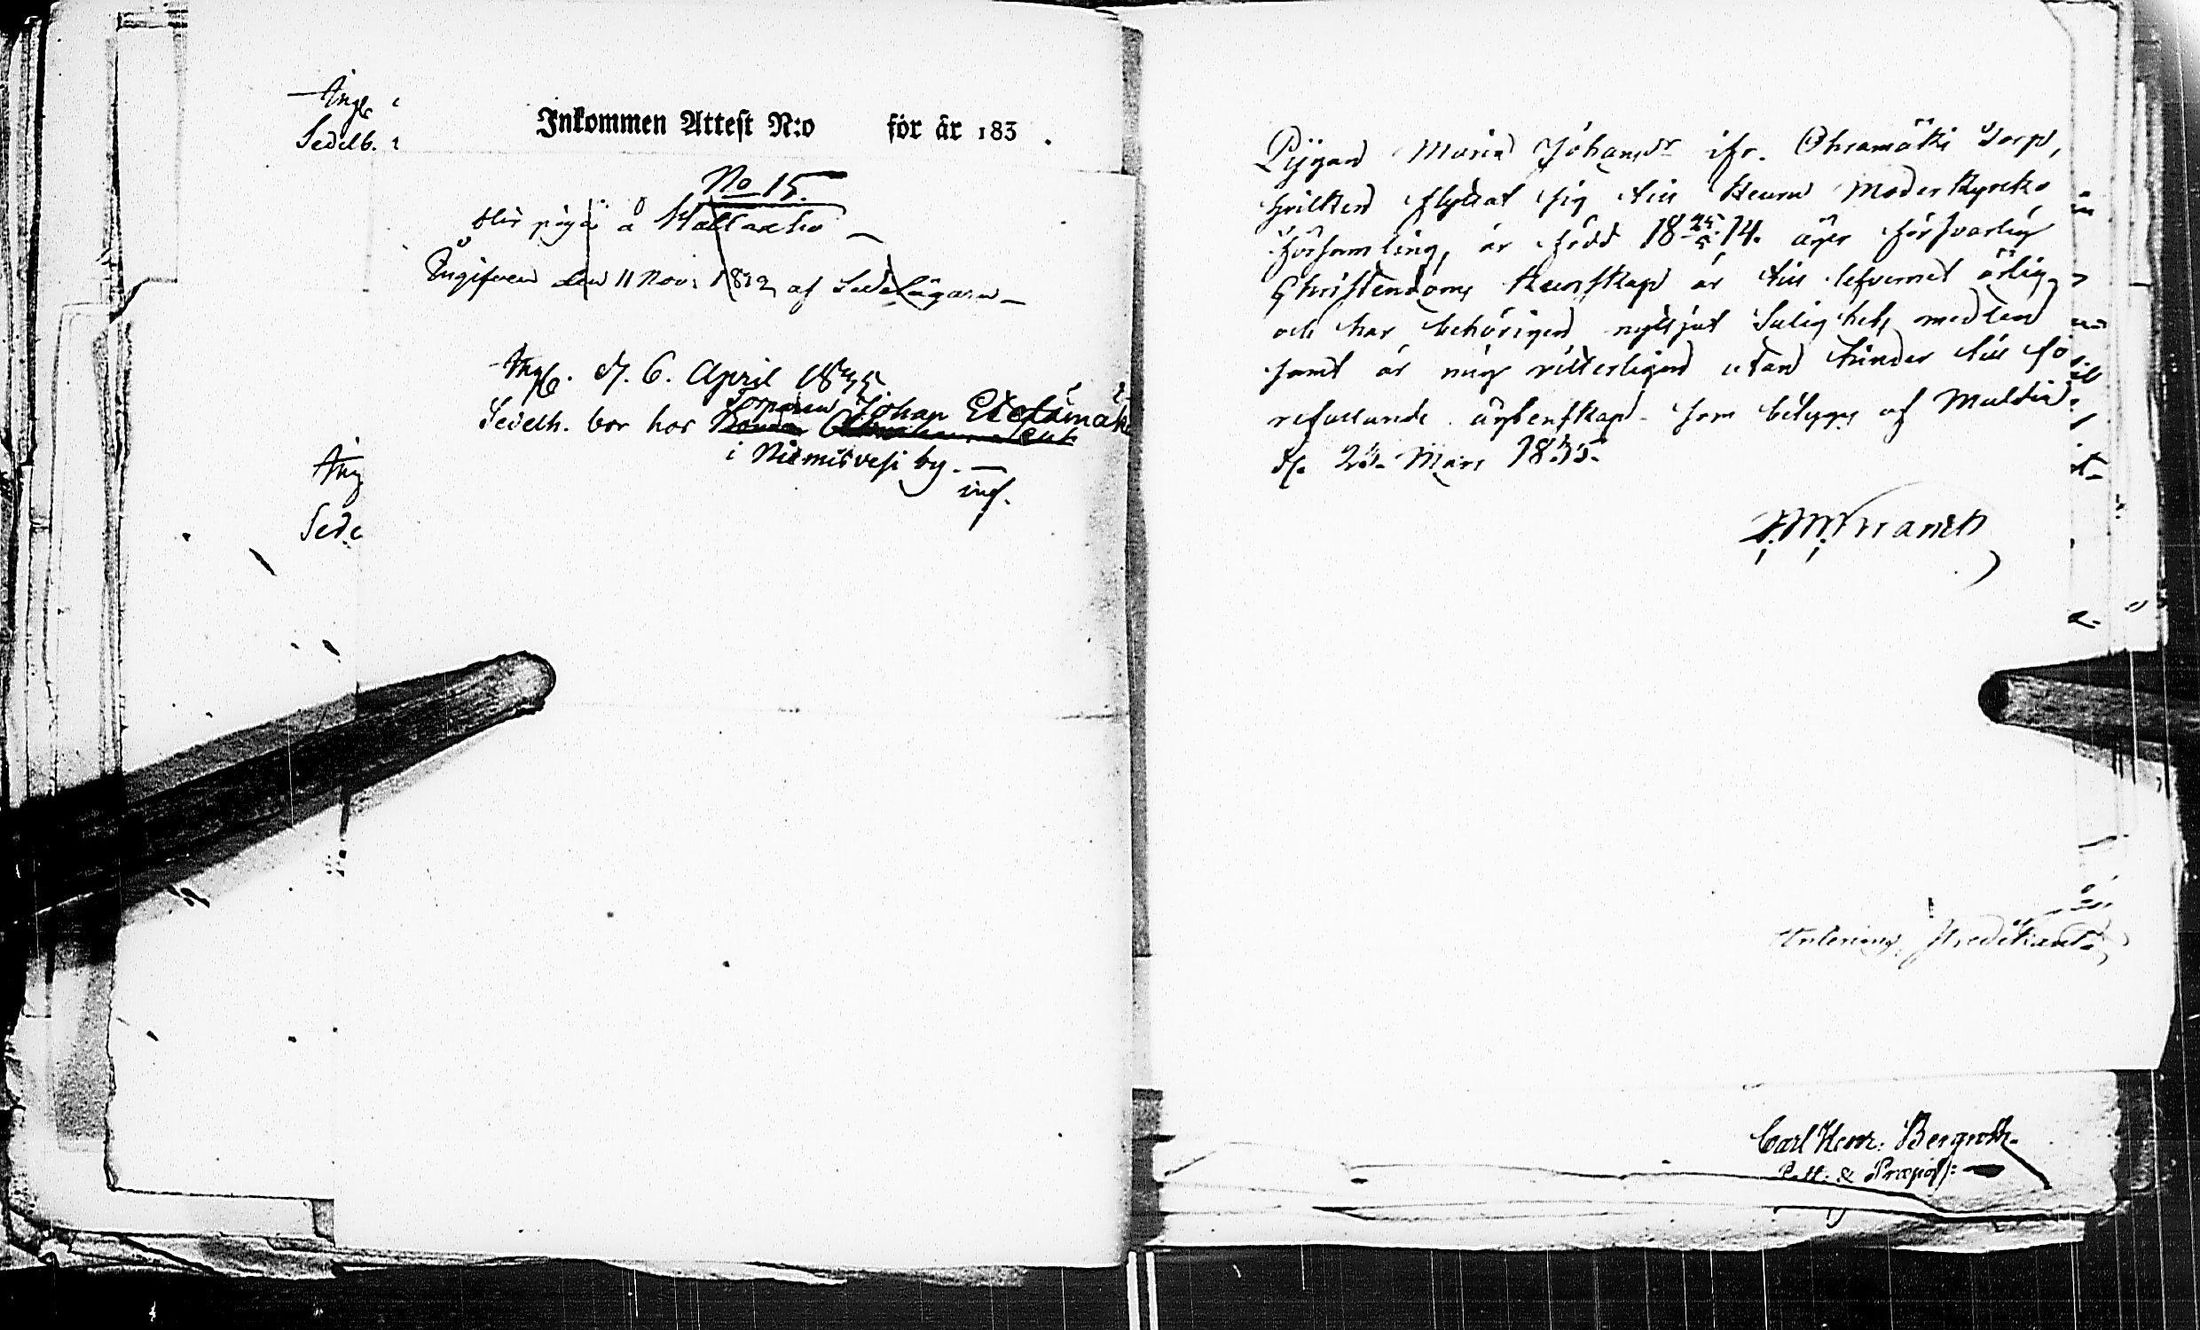 Angb.
Sedelb.
Inkommen Attest N:o för år 183 .
No 15.
blir piga å
Angifven den 11 Nov: 1832 af Sedelägaren
Angb. d. 6. April 1835
Torparen Johan Etelämäki
Sedelh. bor hos Bonden
i Niemisvesi by.
inf.
Ang
Sede
Pigan Maria Johansdr ifr. Ohramäki Torp,
hvilken flyttat sig till Keuru Moderkyrko
församling, är född 18 25/5 14. äger försvarlig
Christendoms kunskap är till lefvernet ärlig
och har behörigen nyttjat Salighets medlen
samt är mig vitterligen utan hinder till fö
refallande ägtenskap som betygas af Multia
d. 23. Mars 1835.
Predikant
Carl Henr. Bergroth
Past. & Præpos: